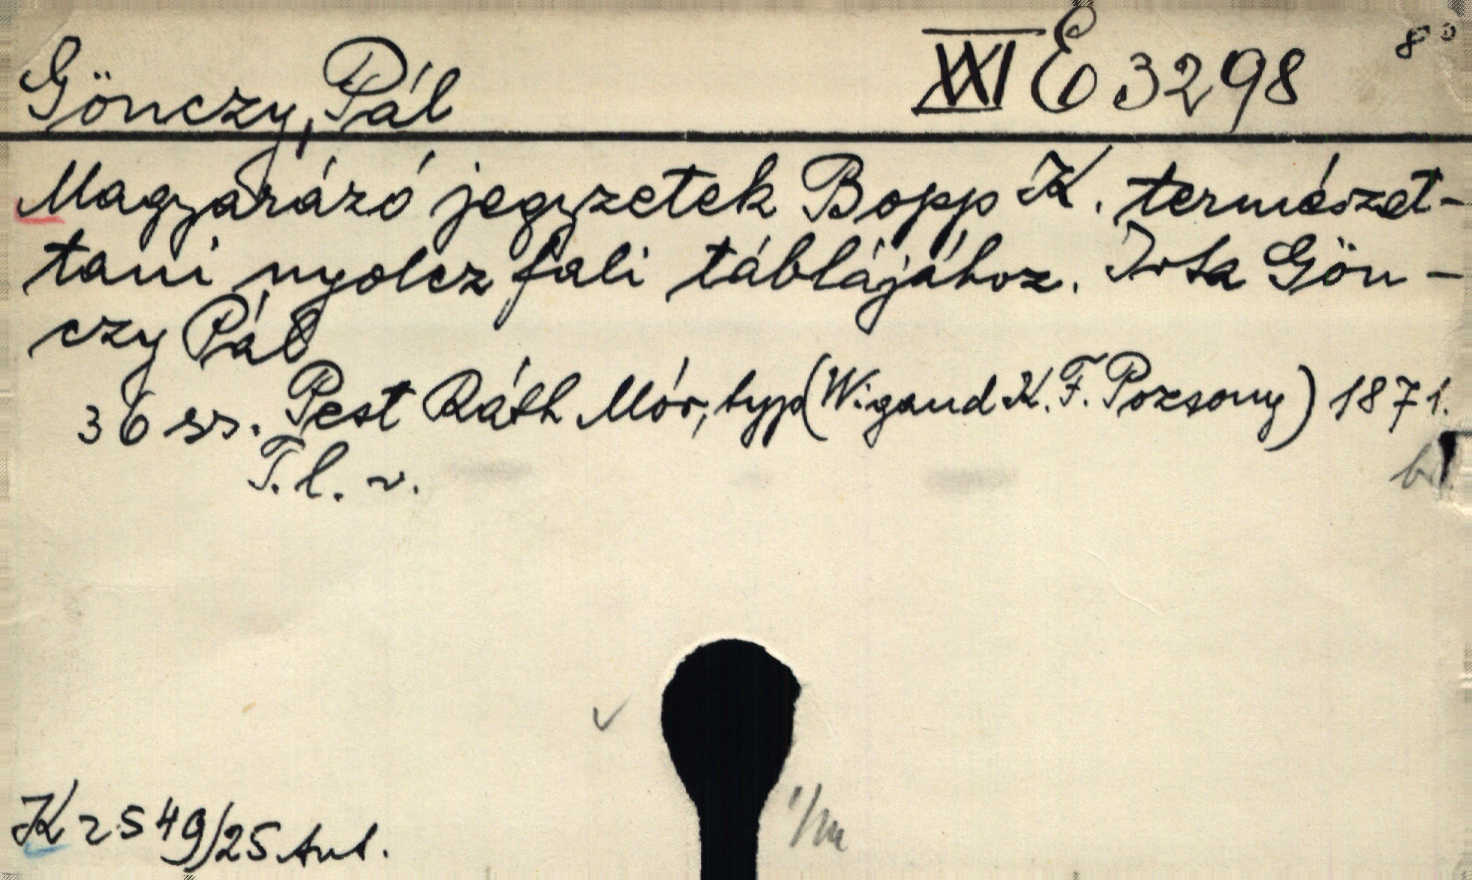 Gönczy, Pál XXI E 3298 8°
Magyarázó jegyzetek Bopp K. természet-
tani nyolcz fali táblájához. Irta Gön-
czy Pál
36 ss. Pest Ráth Mór, typ (Wigand K. F. Pozsony) 1871.
T. l. v.
K 2549/25 Ant.